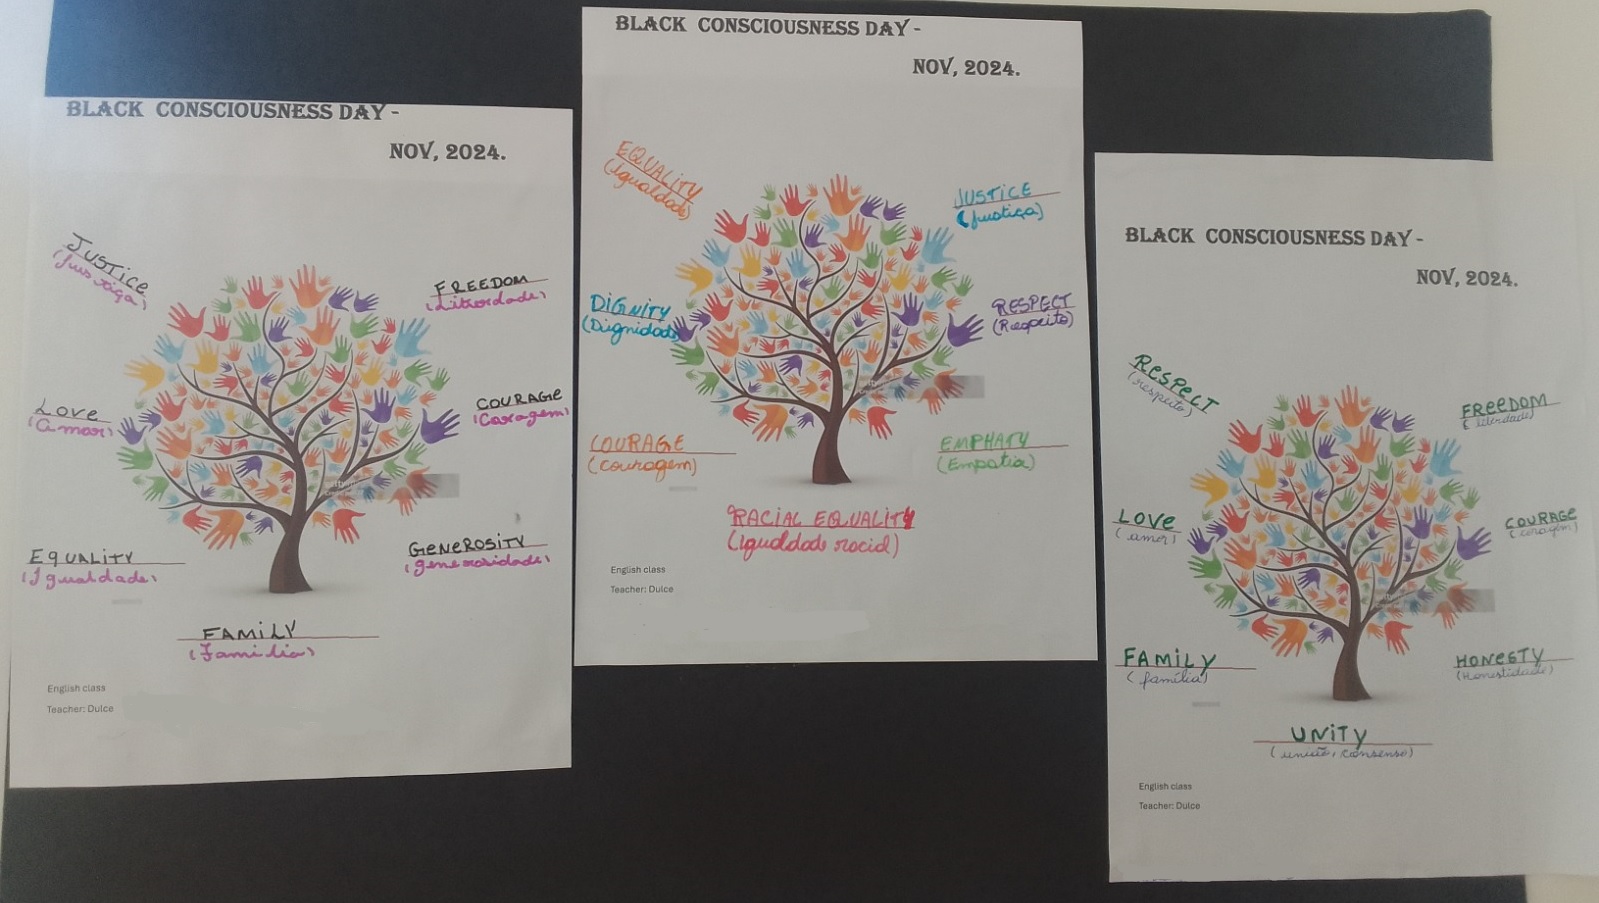 BLACK CONSCIOUSNESS DAY -
NOV, 2024.
JUSTICE
(Justiça)
FREEDOM
(Liberdade)
LOVE
(Amor)
COURAGE
(Coragem)
EQUALITY
(Igualdade)
GENEROSITY
(generosidade)
FAMILY
(Familia)
English class
Teacher: Dulce
BLACK CONSCIOUSNESS DAY -
NOV, 2024.
EQUALITY
(Igualdade)
JUSTICE
(Justiça)
DIGNITY
(Dignidade)
RESPECT
(Respeito)
COURAGE
(couragem)
EMPHATY
(Empatia)
RACIAL EQUALITY
(Igualdade racial)
English class
Teacher: Dulce
BLACK CONSCIOUSNESS DAY -
NOV, 2024.
RESPECT
(respeito)
FREEDOM
(liberdade)
LOVE
(amor)
COURAGE
(coragem)
FAMILY
(família)
HONESTY
(Honestidade)
UNITY
(união, consenso)
English class
Teacher: Dulce